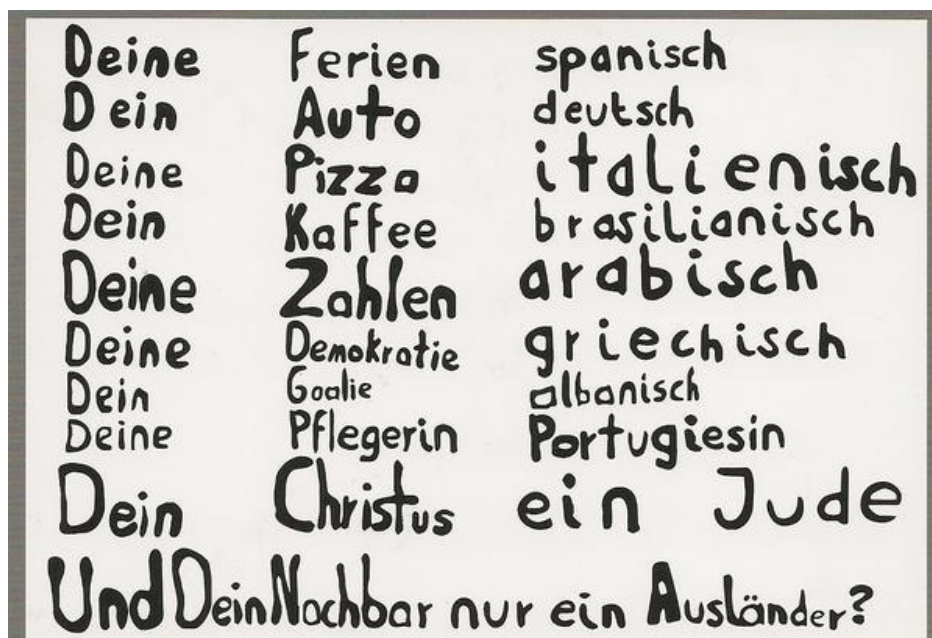 Deine Ferien spanisch
Dein Auto deutsch
Deine Pizza italienisch
Dein Kaffee brasilianisch
Deine Zahlen arabisch
Deine Demokratie griechisch
Dein Goalie albanisch
Deine Pflegerin Portugiesin
Dein Christus ein Jude
Und Dein Nachbar nur ein Ausländer?